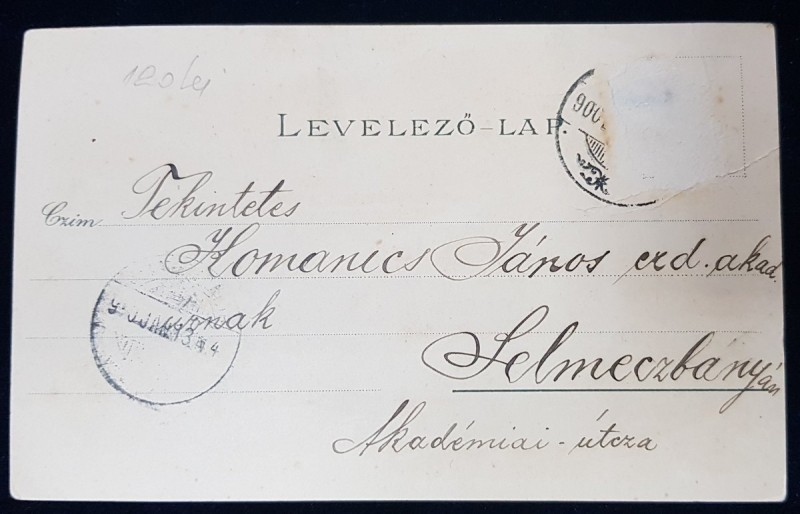 120 lei
LEVELEZŐ-LAP.
900
Czim Tekintetes
Komanics János erd. akad.
nak
Selmeczbányán
Akadémiai-útcza